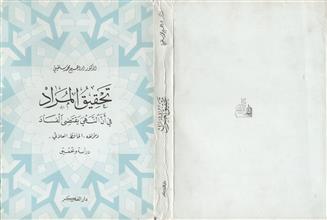 الدكتور ابراهيم محمد سلقيني
تحقيق المراد
في أن النهي يقتضي الفساد
للحافظ العلائي
دراسة وتحقيق
دار الفكر
تحقيق المراد